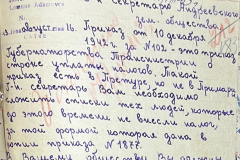 Секретарю Андреевского
зем. общества
Приказ от 10 декабря
1942 г. за № 102 - это приказ
Губернаторства Транснистрии о
сроке уплаты налогов. Такой
приказ есть в Претуре, но не в Примари
секретарь Вам необходимо
списки тех людей, которые
до этого времени не внесли налог,
за той формой которая дана в
приказе № 1877.
Вашему обществу Вы должны